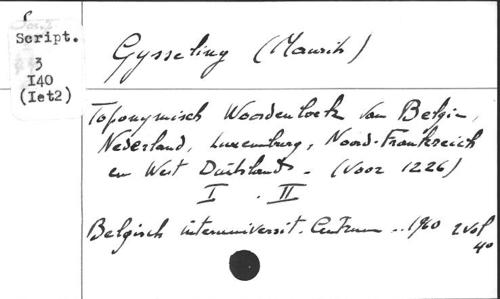 Script.
3
I40
(Iet2)
Gysseling (Maurits)
Toponymisch Woordenboek van België,
Nederland, Luxemburg, Noord-Frankreich
en West Duitsland - (Voor 1226)
I . II
Belgisch interuniversit. Centrum .. 1960 2 vol
4°